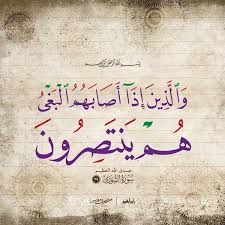 بسم الله الرحمن الرحيم
وَالَّذِينَ إِذَا أَصَابَهُمُ الْبَغْيُ
هُمْ يَنتَصِرُونَ
صدق الله العظيم
سورة الشورى ٣٩